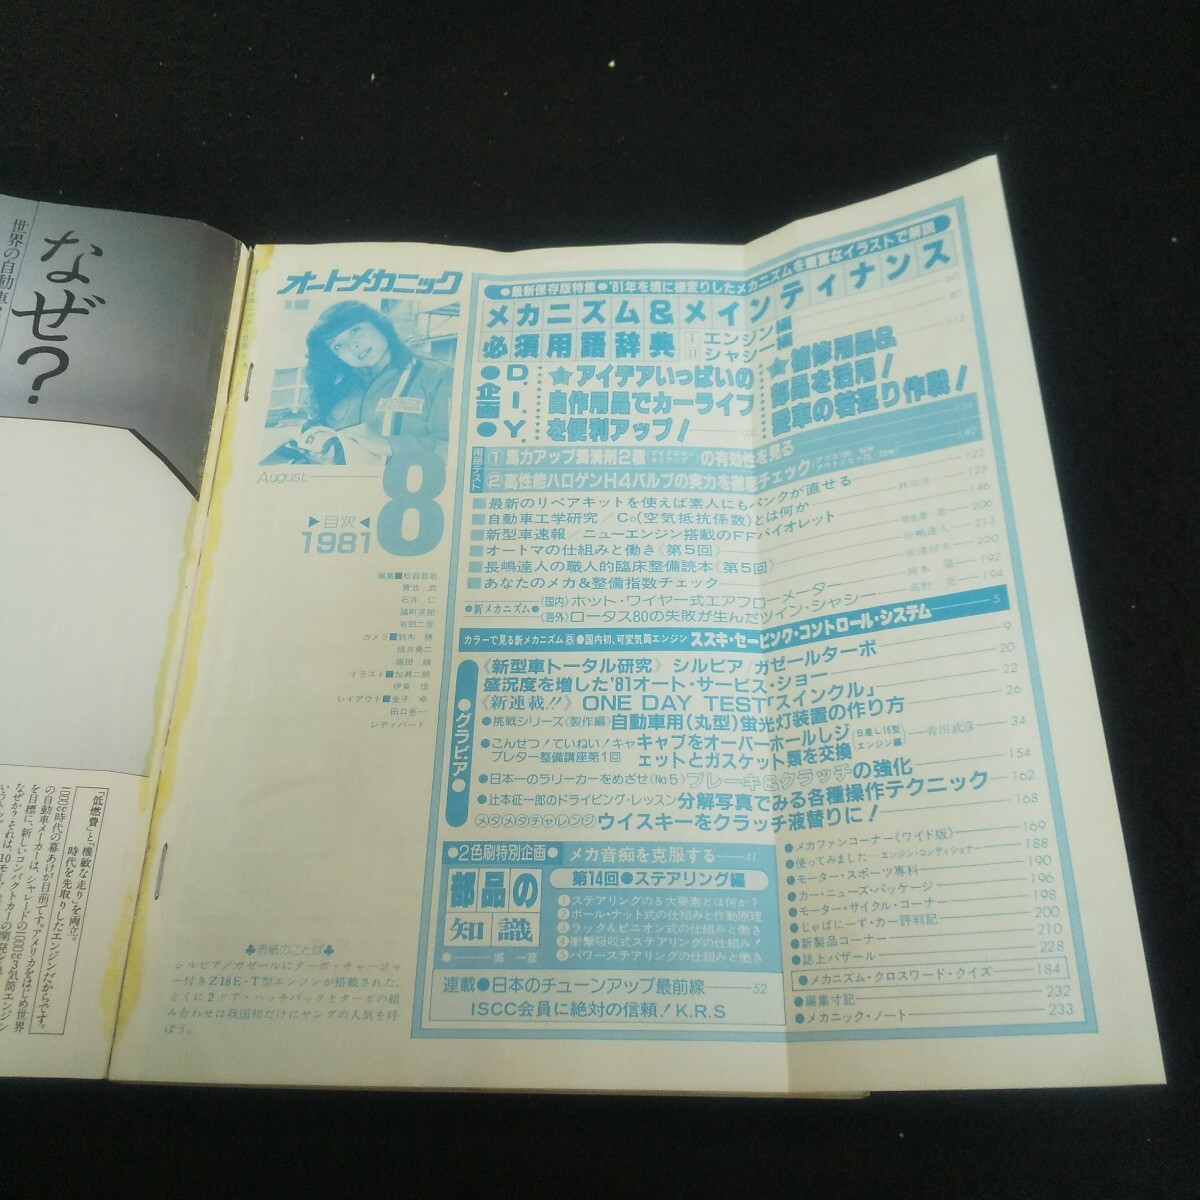 なぜ?
世界の自動車
「低燃費」と「機敏な走り」を両立。
時代を先取りしたエンジンだからです。
1000cc時代の幕あけが目前です。アメリカをはじめ世界
の自動車メーカーは、シャレードの1000cc3気筒エンジン
を目標に、新しいコンパクトカーの開発を
オートメカニック
August
8
▶目次◀
1981
編集■松苗哲哉
石井 仁
諸町英祐
有田二彦
カメラ■鈴木 勝
堀田 順
イラスト■加瀬二朗
伊東 信
レイアウト■金子 卓
田口恵一
レディバード
♣表紙のことば♣
シルビア/ガゼールにターボ・チャージャ
ー付きZ18E・T型エンジンが搭載された。
とくに2ドア・ハッチバックとターボの組
み合わせは我国初だけにヤングの人気を呼
ぼう。
●最新保存版特集●'81年を境に様変りしたメカニズムを豊富なイラストで解説
メカニズム&メインティナンス
必須用語辞典 Ⅰエンジン編 Ⅱシャシー編
60
80
●D.I.Y.企画●
★アイデアいっぱいの
自作用品でカーライフ
を便利アップ!
★補修用品&
部品を活用!
愛車の若返り作戦!
113
用品テスト
①馬力アップ潤滑剤2種の有効性を見る
②高性能ハロゲンH4バルブの実力を徹底チェック
142
■最新のリペアキットを使えば素人にもパンクが直せる 122
■自動車工学研究/CD(空気抵抗係数)とは何か 128
■新型車速報/ニューエンジン搭載のFFバイオレット 146
■オートマの仕組みと働き《第5回》 206
■長嶋達人の職人的臨床整備読本《第5回》 長嶋達人 213
■あなたのメカ&整備指数チェック 220
●新メカニズム●
《国内》ホット・ワイヤー式エアフローメーター 192
《海外》ロータス80の失敗が生んだツイン・シャシー 194
カラーで見る新メカニズム⑧●国内初、可変気筒エンジン スズキ・セービング・コントロール・システム 5
●グラビア●
《新型車トータル研究》シルビア/ガゼールターボ 9
盛況度を増した'81オート・サービス・ショー 20
《新連載!!》ONE DAY TEST「スインクル」 22
●挑戦シリーズ《製作編》自動車用(丸型)蛍光灯装置の作り方 26
●こんせつ!ていねい!キャブレター整備講座第1回 キャブをオーバーホールしジェットとガスケット類を交換 日産L16型エンジン編 青田武彦 34
●日本一のラリーカーをめざせ《No5》ブレーキ&クラッチの強化 154
●辻本征一郎のドライビング・レッスン 分解写真でみる各種操作テクニック 162
メタメタチャレンジ ウイスキーをクラッチ液替りに! 168
●2色刷特別企画● メカ音痴を克服する 41
部品の知識
第14回●ステアリング編
①ステアリングの5大要素とは何か?
②ボール・ナット式の仕組みと作動原理
③ラック&ピニオン式の仕組みと働き
④衝撃吸収式ステアリングの仕組み!
⑤パワーステアリングの仕組みと働き
連載●日本のチューンアップ最前線 52
ISCC会員に絶対の信頼!K.R.S
●メカファンコーナー《ワイド版》 169
●使ってみました…エンジン・コンディショナー 188
●モーター・スポーツ専科 190
●カー・ニューズ・パッケージ 196
●モーター・サイクル・コーナー 198
●じゃばにーず・カー評判記 200
●新製品コーナー 210
●誌上バザール 228
●メカニズム・クロスワード・クイズ 184
●編集寸記 232
●メカニック・ノート 233